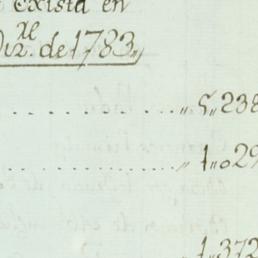 Exista en
Dız.re de 1783,,
,, 5,, 238
,, 1,, 029
,, 1,, 372